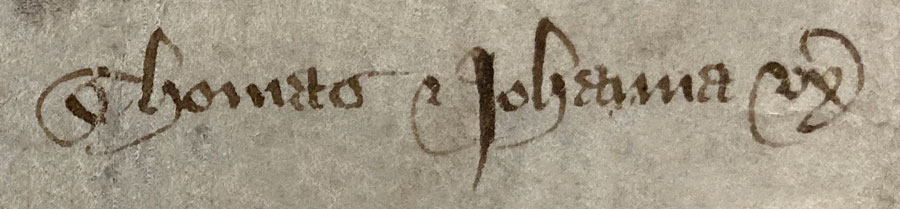 Thomas & Johanna ux